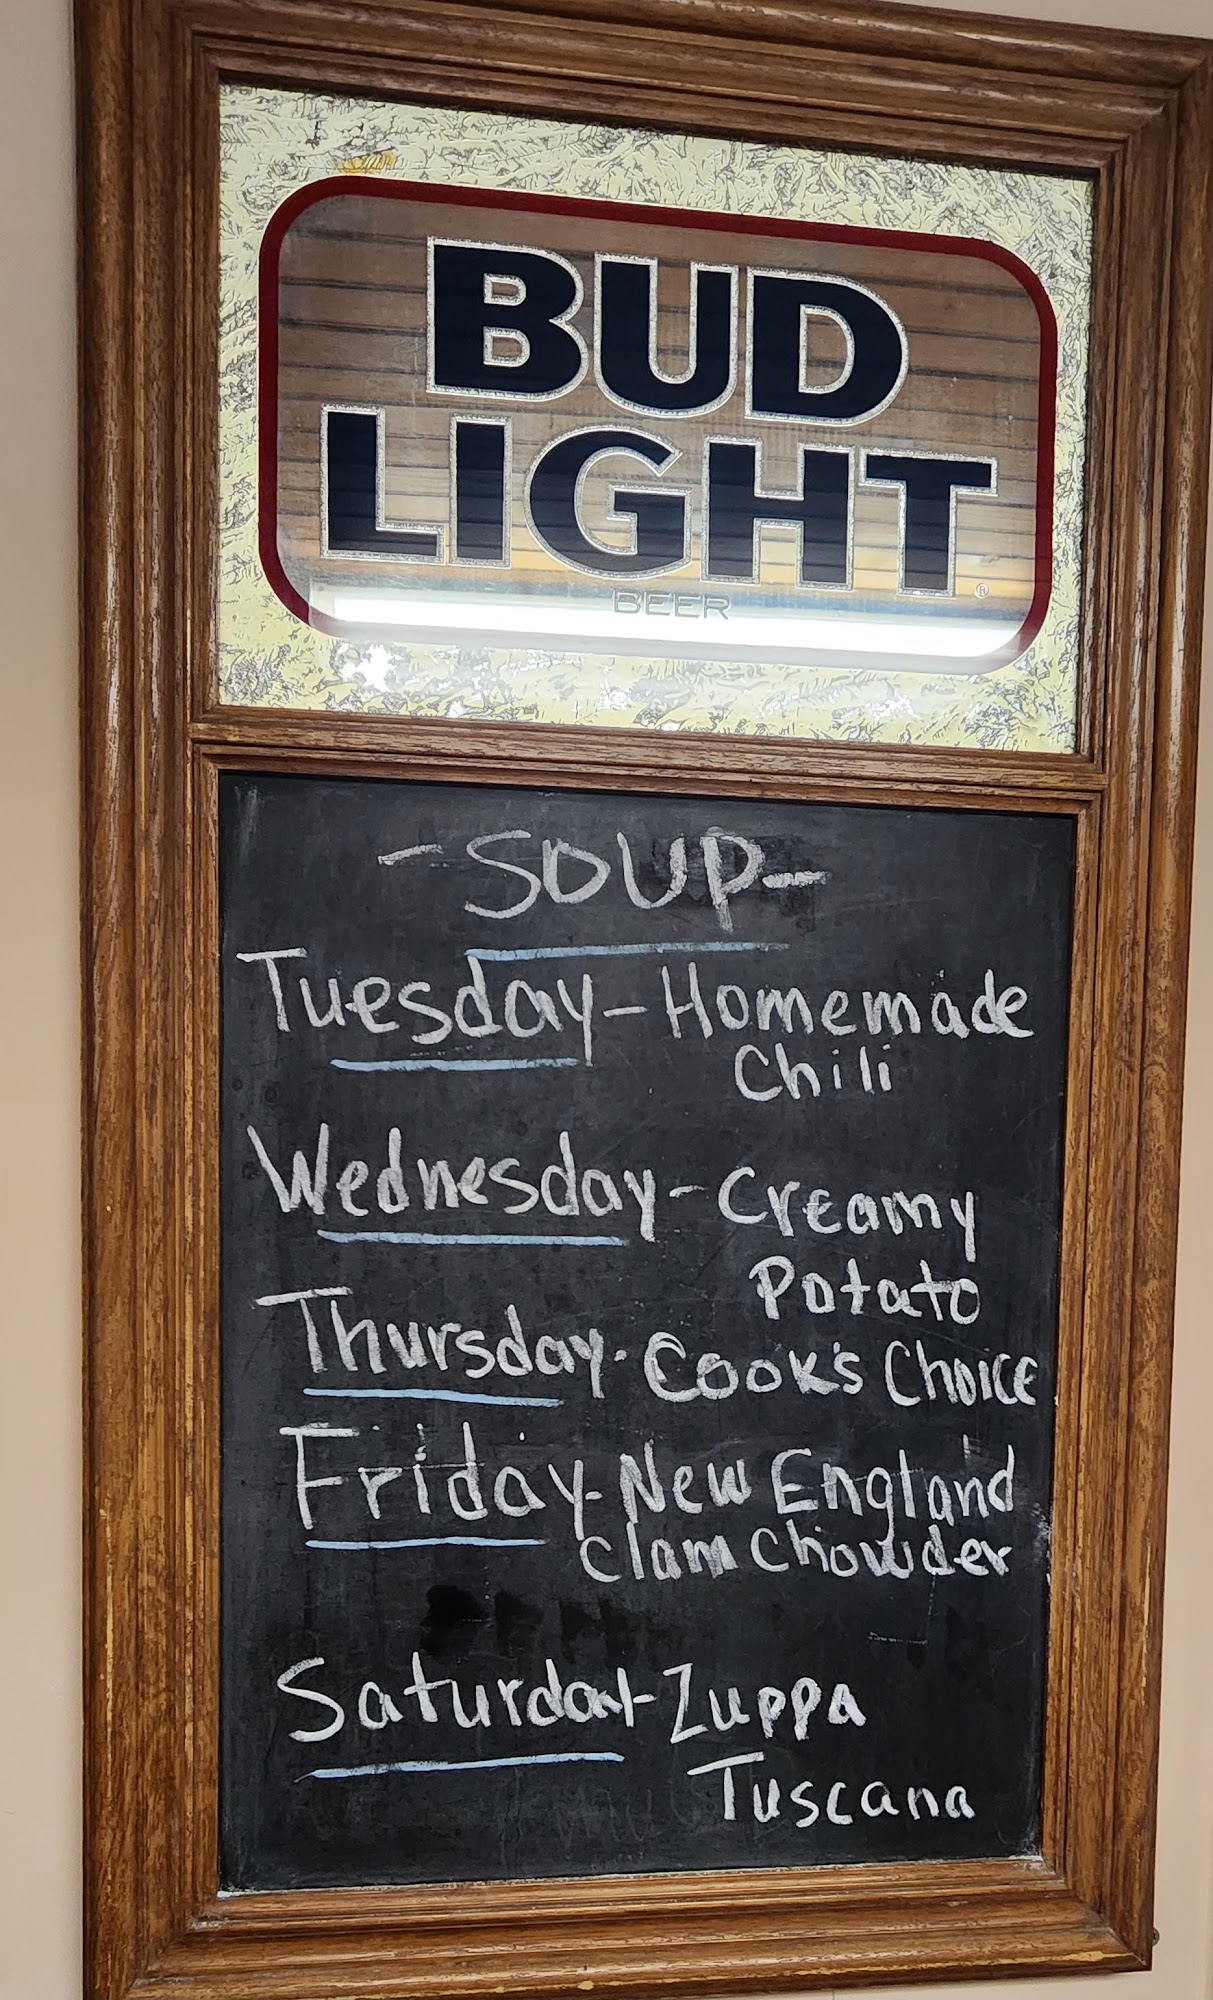 BUD
LIGHT
BEER
-SOUP-
Tuesday-Homemade
Chili
Wednesday-Creamy
Potato
Thursday-Cook's Choice
Friday-New England
Clam Chowder
Saturday-Zuppa
Tuscana